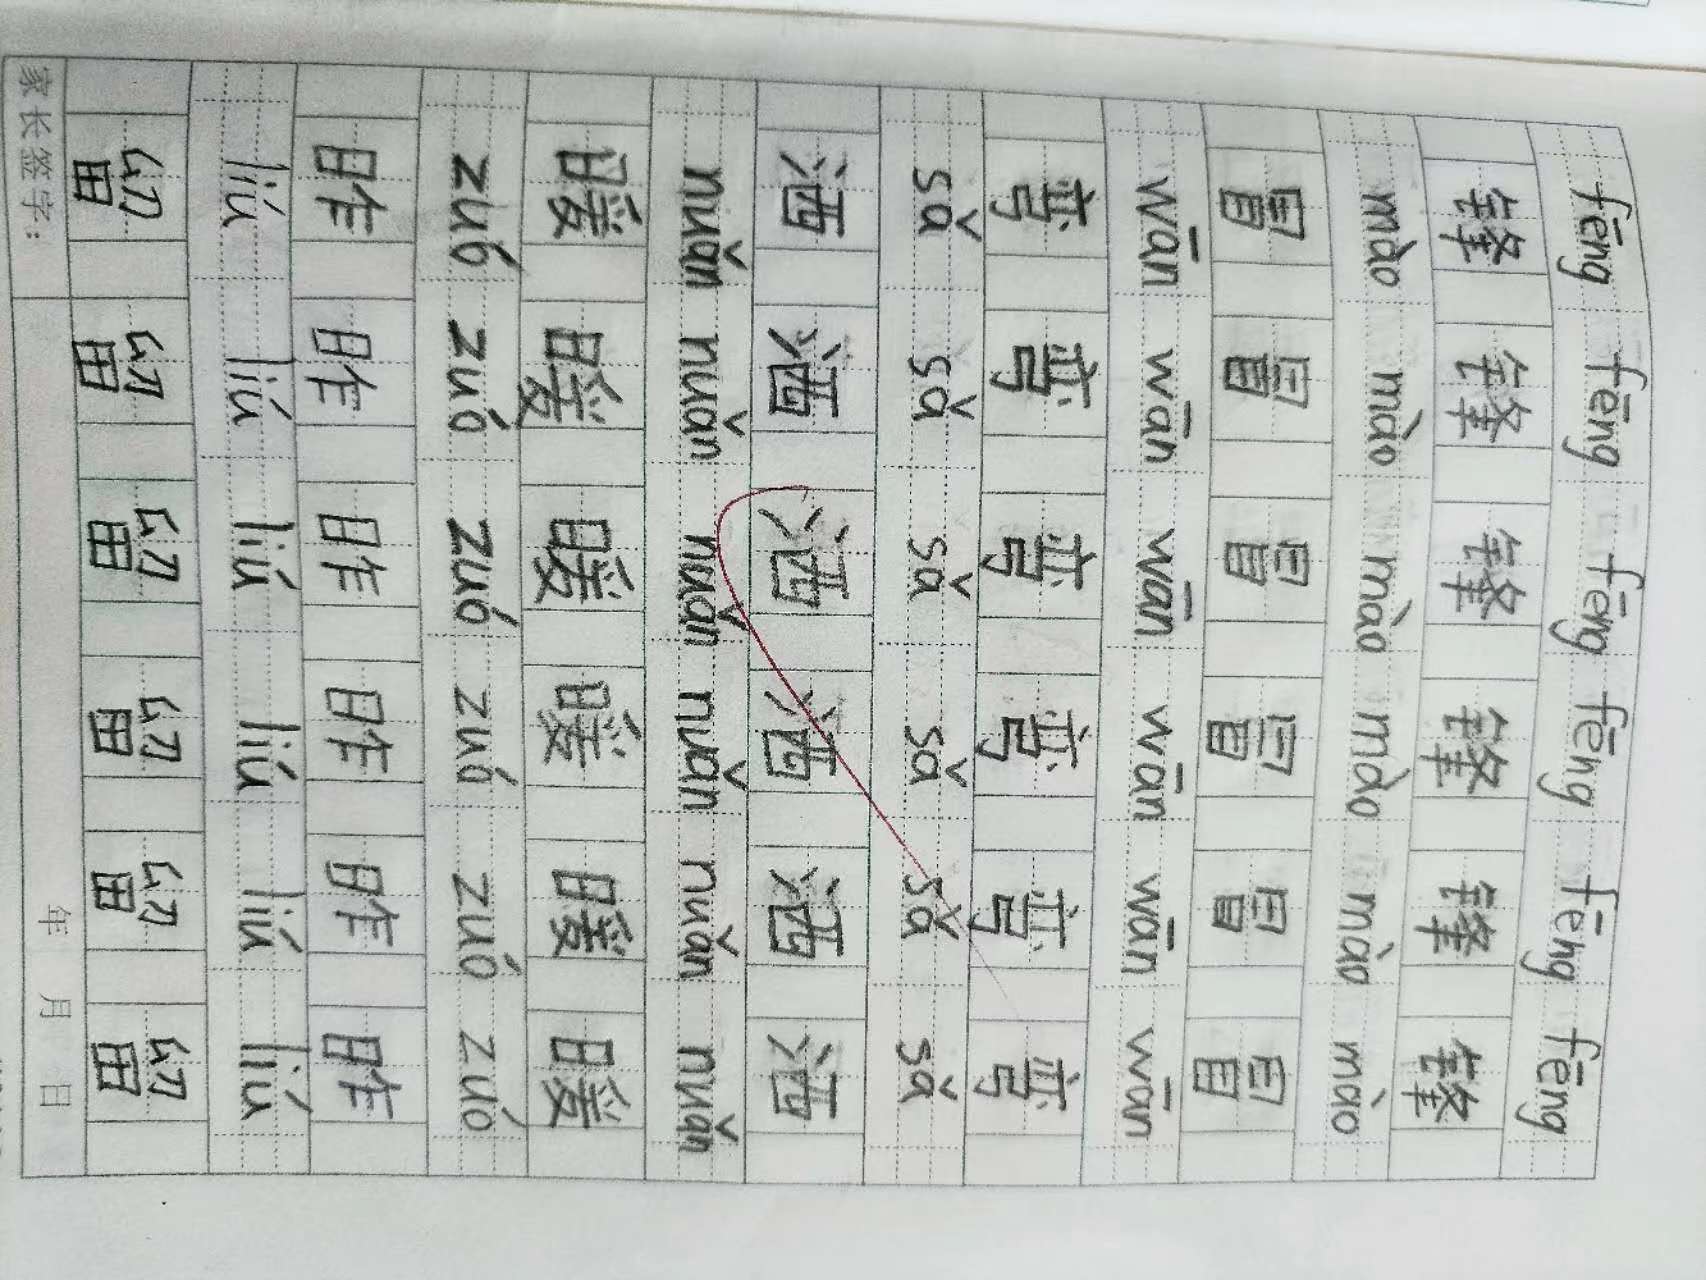 fēng fēng fēng fēng fēng fēng
锋 锋 锋 锋 锋 锋
mào mào mào mào mào mào
冒 冒 冒 冒 冒 冒
wān wān wān wān wān wān
弯 弯 弯 弯 弯 弯
sǎ sǎ sǎ sǎ sǎ sǎ
洒 洒 洒 洒 洒 洒
nuǎn nuǎn nuǎn nuǎn nuǎn nuǎn
暖 暖 暖 暖 暖 暖
zuó zuó zuó zuó zuó zuó
昨 昨 昨 昨 昨 昨
liú liú liú liú liú liú
留 留 留 留 留 留
家长签字: 年 月 日